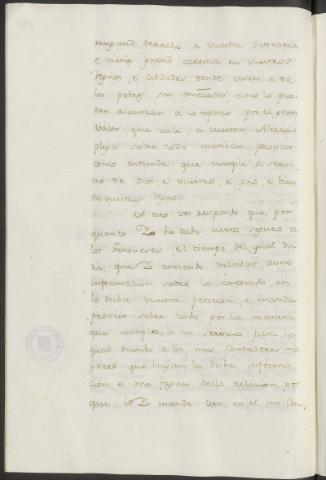 ningund derecho a vuestra Señoria
e viene grand carestia en vuestros
Reynos, e cibdades donde viven e de
los pobres son e no lo pue-
den alcanzar a comprar por el gran
valor, que vale, a vuestra Alteza
plega sobre todo mandar proveer
como entienda que cumple a servi-
cio de Dios, e vuestro, e pro, e bien
de vuestros Reynos.
A esto vos respondo que por
quanto Yo he dado cierto seguro a
los Genoveses el tiempo del qual du-
ra, que Yo entiendo mandar aver
informacion sobre lo contenido en
la dicha vuestra peticion, e mandar
proveer sobre todo por la manera
que cumpla a mi servicio para lo
qual mando a los mis Contadores ma-
yores que hayan la dicha informa-
cion, e me fagan dello relacion por
que lo Yo mande ver en el mi Con-